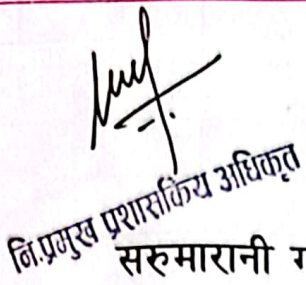 नि.प्रमुख प्रशासकिय अधिकृत
सरुमारानी ग